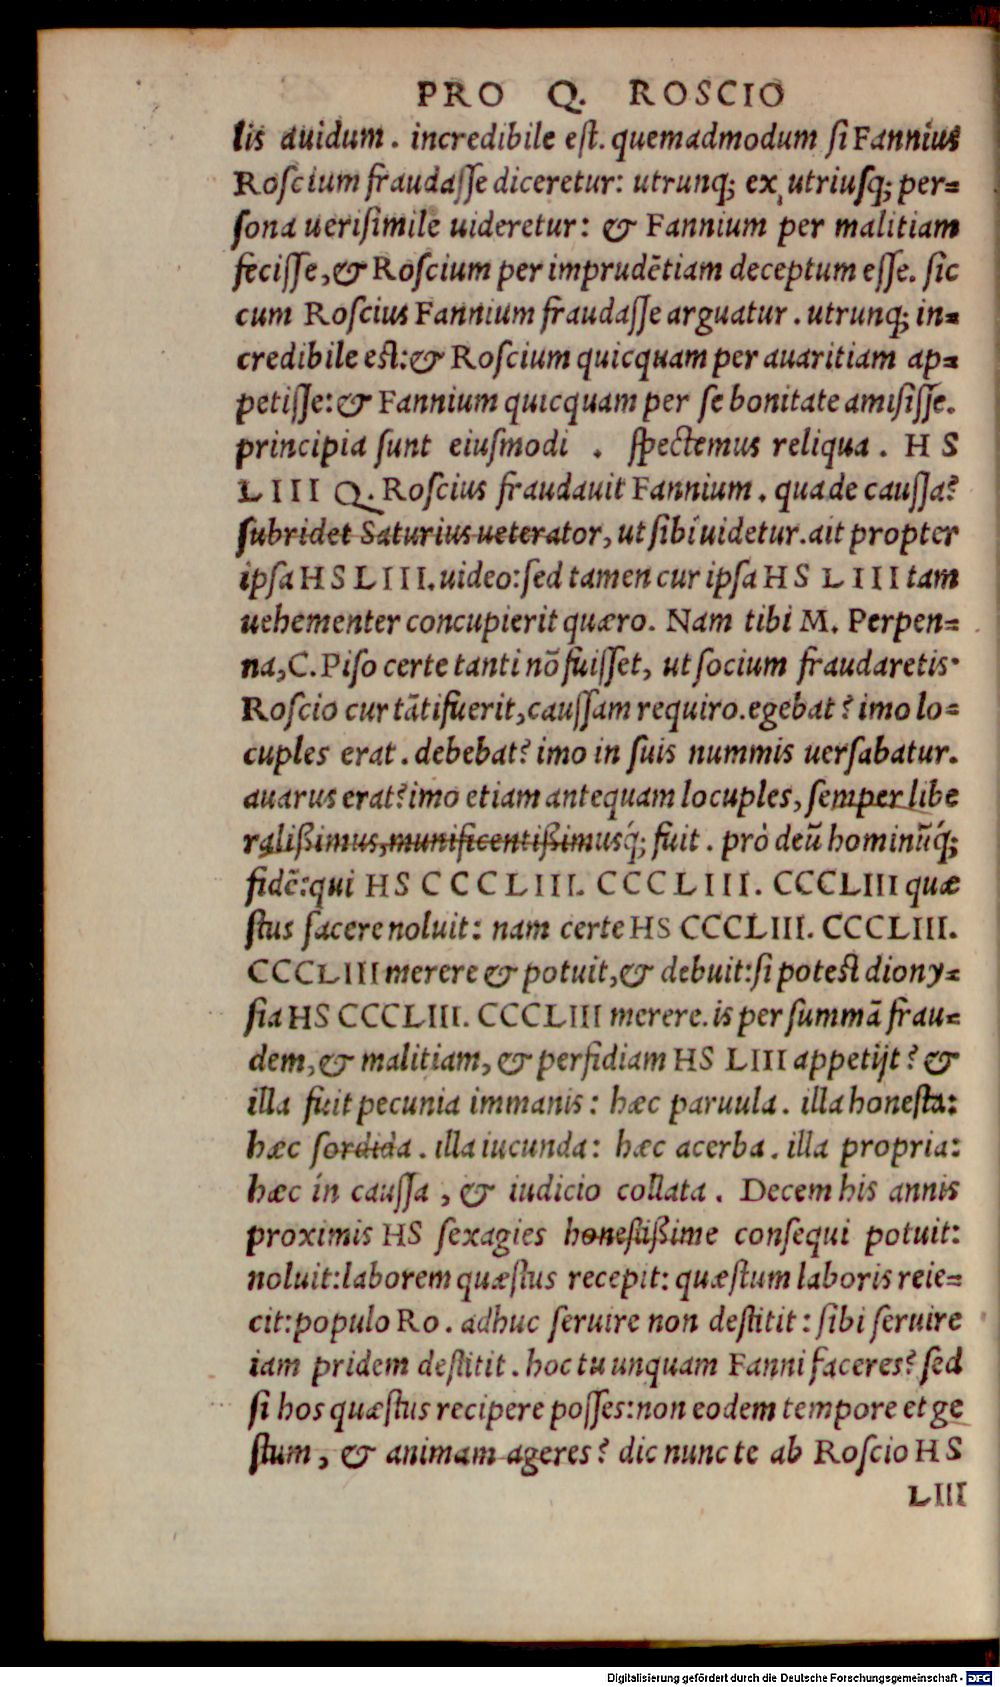 PRO Q. ROSCIO
lis auidum. incredibile est. quemadmodum si Fannius
Roscium fraudaſſe diceretur: utrunq; ex utriuſq; per=
ſona ueriſimile uideretur: & Fannium per malitiam
feciſſe, & Roſcium per imprudētiam deceptum eſſe. ſic
cum Roſcius Fannium fraudaſſe arguatur. utrunq; in=
credibile est: & Roſcium quicquam per auaritiam ap=
petiſſe: & Fannium quicquam per ſe bonitate amiſiſſe.
principia ſunt eiuſmodi. ſpectemus reliqua. H S
L I I I Q. Roſcius fraudauit Fannium. qua de cauſſa?
ſubridet Saturius ueterator, ut ſibi uidetur. ait propter
ipſa H S L I I I. uideo: ſed tamen cur ipſa H S L I I I tam
uehementer concupierit quæro. Nam tibi M. Perpen=
na, C. Piſo certe tanti nō fuiſſet, ut ſocium fraudaretis.
Roſcio cur tāti fuerit, cauſſam requiro. egebat? imo lo=
cuples erat. debebat? imo in ſuis nummis uerſabatur.
auarus erat? imo etiam antequam locuples, ſemper libe
raliſſimus, munificentiſſimusq́; fuit. prò deū hominūq́;
fidē: qui H S C C C L I I I. C C C L I I I. CCCLIII quæ
ſtus facere noluit: nam certe HS CCCLIII. CCCLIII.
CCCLIII merere & potuit, & debuit: ſi potest diony=
ſia HS CCCLIII. CCCLIII merere. is per ſummā frau=
dem, & malitiam, & perfidiam HS LIII appetijt? &
illa fuit pecunia immanis: hæc paruula. illa honeſta:
hæc ſordida. illa iucunda: hæc acerba. illa propria:
hæc in cauſſa, & iudicio collata. Decem his annis
proximis HS ſexagies honeſtiſſime conſequi potuit:
noluit: laborem quæſtus recepit: quæſtum laboris reie=
cit: populo Ro. adhuc ſeruire non deſtitit: ſibi ſeruire
iam pridem deſtitit. hoc tu unquam Fanni faceres? ſed
ſi hos quæſtus recipere poſſes: non eodem tempore et ge
ſtum, & animam ageres? dic nunc te ab Roſcio H S
LIII
Digitalisierung gefördert durch die Deutsche Forschungsgemeinschaft - DFG